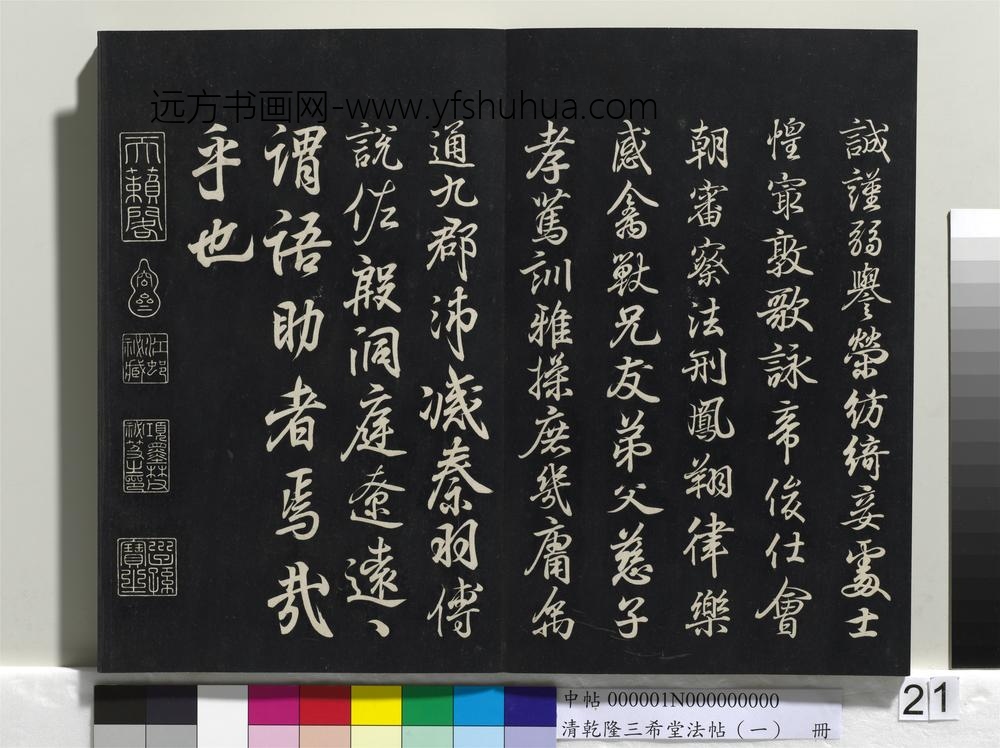 远方书画网-www.yfshuhua.com
誠謹弱譽榮紡綺妾處士
惶寂敦歌詠帝俊仕會
朝審察法刑鳳翔律樂
感禽獸兄友弟父慈子
孝篤訓雅操庶幾庸
通九郡沛滅秦羽傅
說佐殷洞庭遼遠丶
謂語助者焉哉
乎也
天籟閣
江邨秘藏
項墨林秘笈之印
中帖 000001N000000000
清乾隆三希堂法帖（一） 冊
21